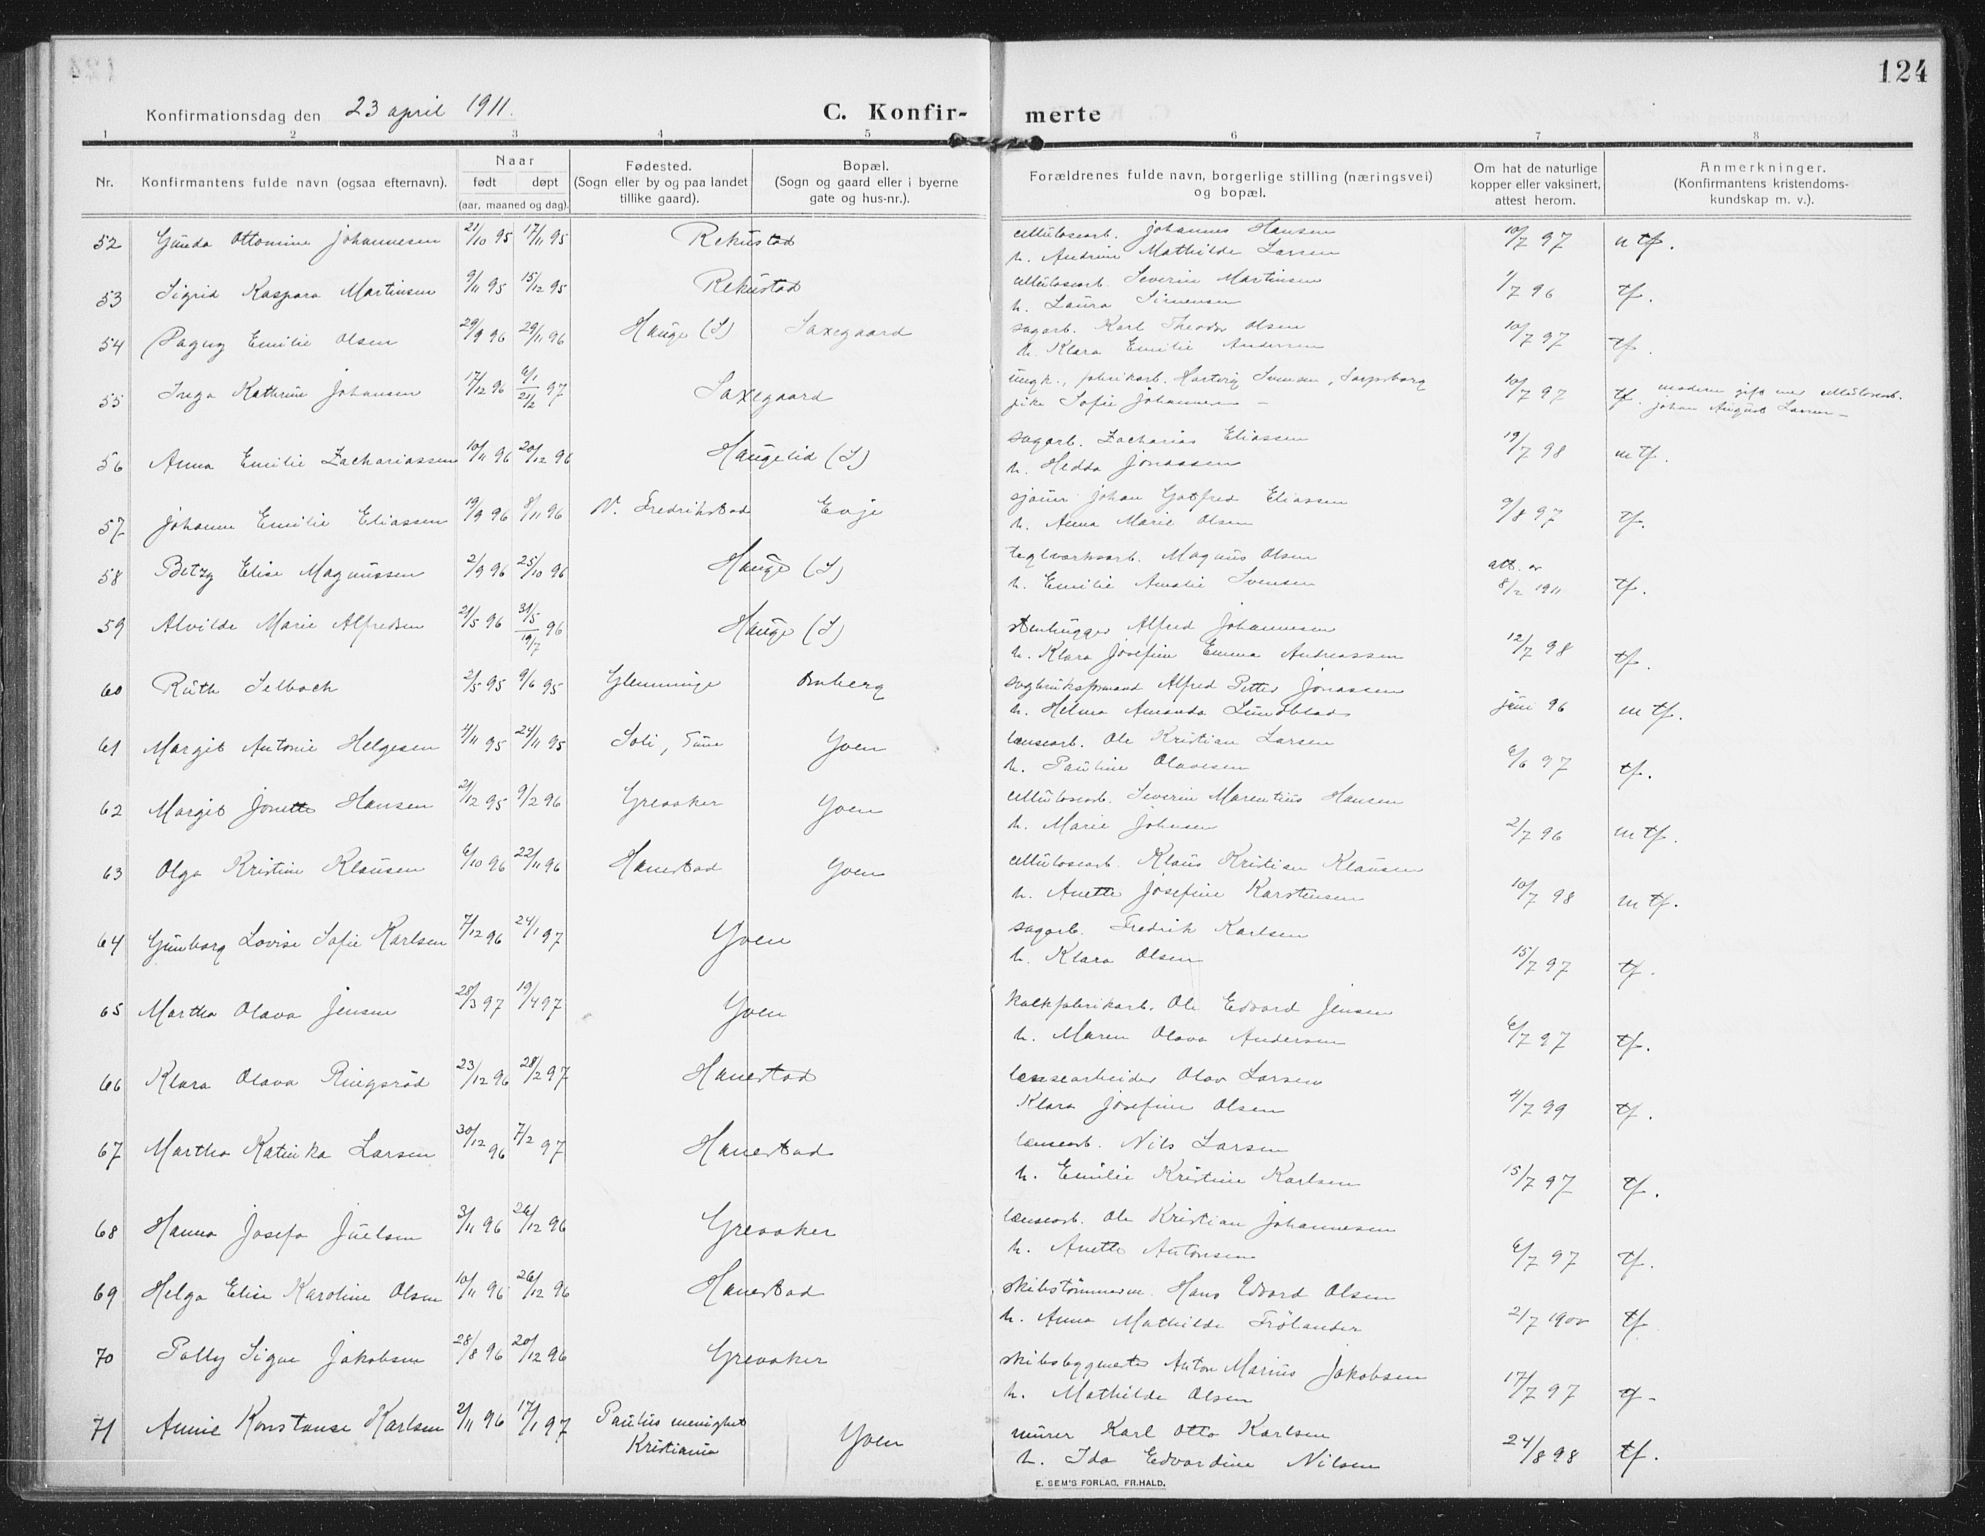 124
Konfirmationsdag den 23 april 1911.
C. Konfir- merte
1 2 3 4 5 6 7 8
Nr. Konfirmantens fulde navn (ogsaa efternavn). Naar født døpt (aar, maaned og dag). Fødested. (Sogn eller by og paa landet tillike gaard). Bopæl. (Sogn og gaard eller i byerne gate og hus-nr.). Forældrenes fulde navn, borgerlige stilling (næringsvei) og bopæl. Om hat de naturlige kopper eller vaksinert, attest herom. Anmerkninger. (Konfirmantens kristendoms- kundskap m. v.).
52 Gunda Ottomine Johannesen 21/10 95 17/11 95 Rekustad cellulosearb. Johannes Hansen 10/7 97 mtf.
h. Andrine Mathilde Larsen
53 Sigrid Kaspara Martinsen 9/11 95 15/12 95 Rekustad cellulosearb. Severin Martinsen 1/7 96 tf.
h. Laura Simensen
54 Dagny Emilie Olsen 29/9 96 29/11 96 Hauge (S) Saxegaard sagarb. Karl Theodor Olsen 10/7 97 tf.
h. Klara Emilie Andersen
55 Inga Kathrine Johansen 17/12 96 6/1 21/2 97 Saxegaard ungk., fabrikarb. Hartvig Svensen, Sarpsborg 10/7 97 tf. moderen gift med cellulosearb.
pike Sofie Johannesen – Johan August Larsen –
56 Anna Emilie Zachariassen 10/11 96 20/12 96 Haugelid (S) sagarb. Zacharias Eliassen 19/7 98 mtf.
h. Hedda Jonassen
57 Johanne Emilie Eliassen 19/9 96 8/11 96 V. Fredrikstad Evje sjauer Johan Gotfred Eliassen 9/8 97 tf.
h. Anna Marie Olsen
58 Betzy Elise Magnussen 2/9 96 25/10 96 Hauge (S) teglværksarb. Magnus Olsen att. av
h. Emilie Amalie Svensen 8/2 1911 tf.
59 Alvilde Marie Alfredsen 21/5 96 31/5 19/7 96 Hauge (S) stenhugger Alfred Johannesen 12/7 98 tf.
h. Klara Josefine Emma Andreassen
60 Ruth Selboch 2/5 95 9/6 95 Glemminge Omberg sagbruksformand Alfred Petter Jonassen juni 96 mtf.
h. Helma Amanda Lundblad
61 Margit Antonie Helgesen 4/11 95 24/11 95 Soli, Tune Yven lænsearb. Ole Kristian Larsen 6/6 97 tf.
h. Pauline Olavesen
62 Margit Jonette Hansen 21/12 95 9/2 96 Greaaker Yven cellulosearb. Severin Marentius Hansen 2/7 96 mtf.
h. Marie Johnsen
63 Olga Kristine Klausen 6/10 96 22/11 96 Hanestad Yven cellulosearb. Klaus Kristian Klausen 10/7 98 mtf.
h. Anette Josefine Karstensen
64 Gunborg Lovise Sofie Karlsen 7/12 96 24/1 97 Yven sagarb. Fredrik Karlsen 15/7 97 tf.
h. Klara Olsen
65 Martha Olava Jensen 28/3 97 19/4 97 Yven kalkfabrikarb. Ole Edvard Jensen 6/7 97 tf.
h. Maren Olava Andersen
66 Klara Olava Ringsrød 23/12 96 28/2 97 Hanestad lænsearbeider Olav Larsen 4/7 99 tf.
Klara Josefine Olsen
67 Martha Katinka Larsen 30/12 96 7/2 97 Hanestad lænsearb. Nils Larsen 15/7 97 tf.
h. Emilie Kristine Karlsen
68 Hanna Josefa Juelsen 3/11 96 26/12 96 Greaaker lænsearb. Ole Kristian Johannesen 6/7 97 tf.
h. Anette Antonsen
69 Helga Elise Karoline Olsen 10/11 96 26/12 96 Hanestad skibstømmerm. Hans Edvard Olsen 2/7 1900 tf
h. Anna Mathilde Frölander
70 Polly Signe Jakobsen 28/8 96 20/12 96 Greaaker skibsbygmester Anton Marius Jakobsen 17/7 97 tf –
h. Mathilde Olsen
71 Annie Konstanse Karlsen 2/11 96 17/1 97 Paulus menighet Kristiania Yven murer Karl Otto Karlsen 24/8 98 tf.
h. Ida Edvardine Nilsen
E. SEM'S FORLAG, FR.HALD.